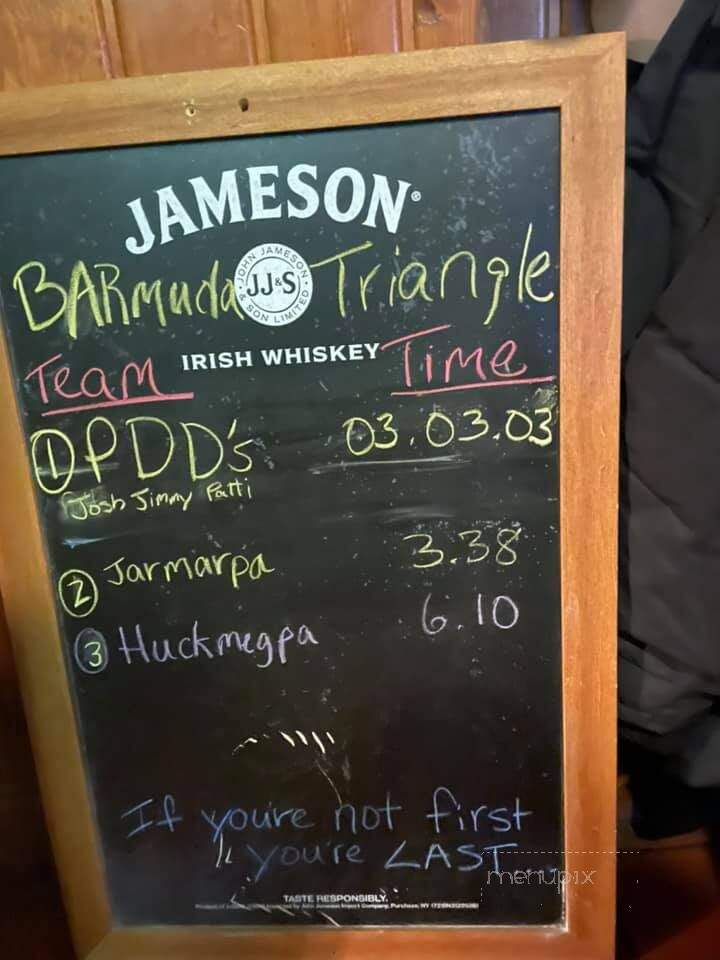 JAMESON®
BARmuda Triangle
JOHN JAMESON
JJ&S
& SON LIMITED
IRISH WHISKEY
Team Time
1 PDD's 03.03.03
Josh Jimmy Patti
2 Jarmarpa 3.38
3 Huckmegpa 6.10
If you're not first
you're LAST
menupix
TASTE RESPONSIBLY.